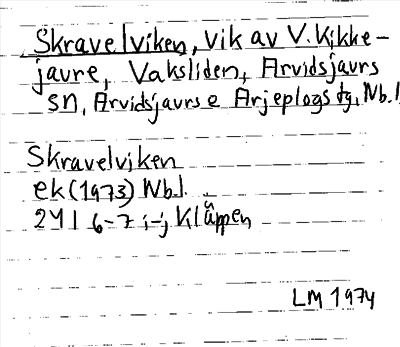 Skravelviken, vik av V. Kikke-
jaure, Vaksliden, Arvidsjaurs
sn, Arvidsjaurs o Arjeplogs tg, Nb.l
Skravelviken
ek (1973) Nb.l.
24I 6-7 i-j Kläppen
LM 1974